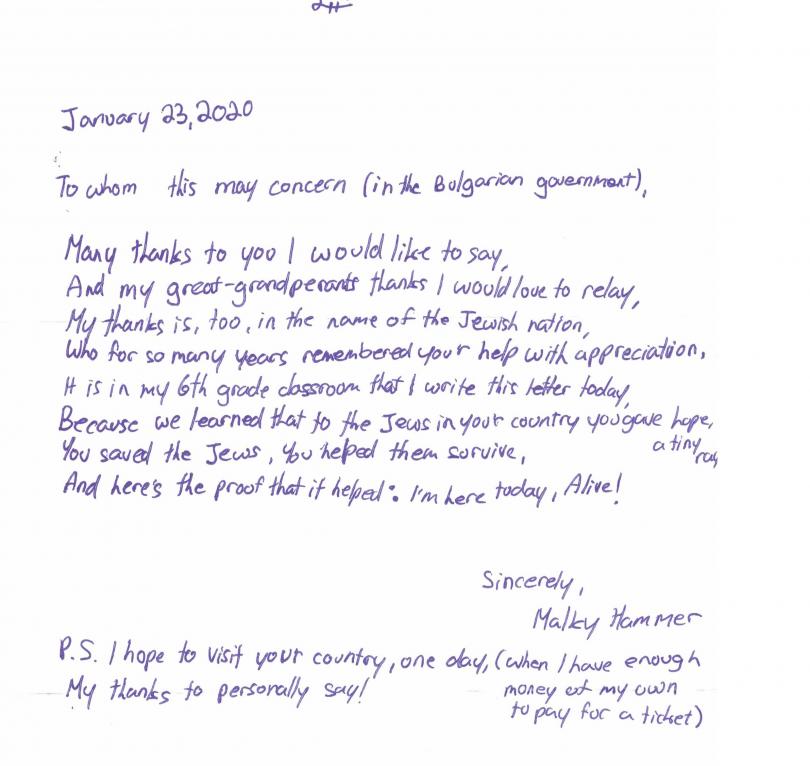 January 23, 2020
To whom this may concern (in the Bulgarian government),
Many thanks to you I would like to say,
And my great-grandperants thanks I would love to relay,
My thanks is, too, in the name of the Jewish nation,
Who for so many years remembered your help with appreciation,
It is in my 6th grade classroom that I write this letter today,
Because we learned that to the Jews in your country you gave hope,
a tiny ray
You saved the Jews, You helped them survive,
And here's the proof that it helped: I'm here today, Alive!
Sincerely,
Malky Hammer
P.S. I hope to visit your country, one day, (when I have enough
money of my own
to pay for a ticket)
My thanks to personally say!